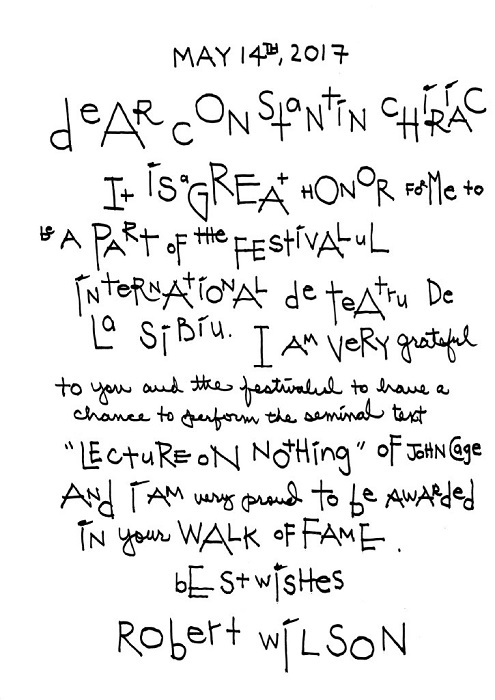 MAY 14TH, 2017
deAR CONStaNtiN CHiRiAC
It iS a GREAt HONOR FoR Me to
be A PARt oF tHe FEStiVALuL
iNteRNAtiONAL de teAtru De
La SiBiu. I AM VeRY grateful
to you and the festivalul to have a
chance to perform the seminal text
"LEctuRE oN NOtHing" oF JOHN Cage
ANd I AM very proud to be AWARded
iN your WALK OF FAME.
bEStwisHes
RObert WiLSON